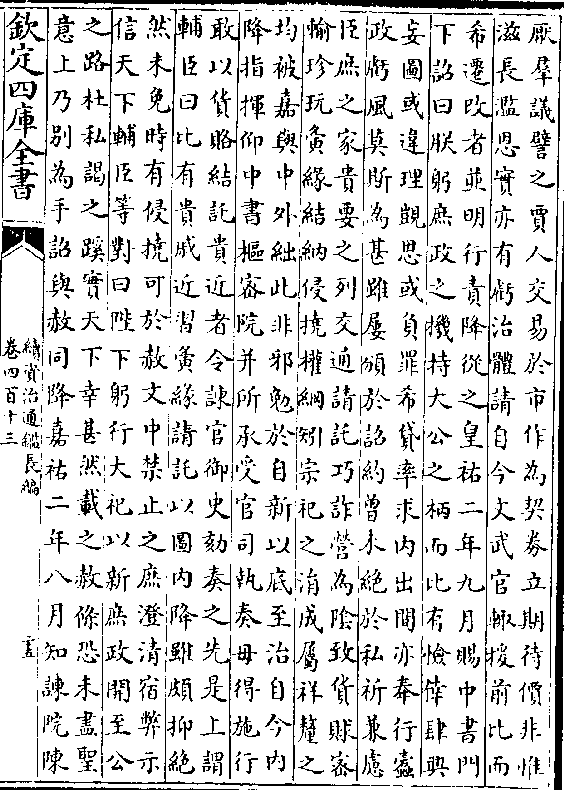 厭羣議譬之賈人交易於市作為契劵立期待價非惟
滋長濫恩實亦有虧治體請自今文武官輙援前比而
希遷改者並明行責降從之皇祐二年九月賜中書門
下詔曰朕躬庶政之機持大公之柄而比有憸倖肆興
妄圖或違理覬思或負罪希貸率求内出間亦奉行蠧
政虧風莫斯為甚雖屢頒於詔約曾未絶於私祈兼慮
臣庶之家貴要之列交通請託巧詐營為陰致貨賕密
輸珍玩夤緣結納侵撓權綱矧宗祀之涓成屬祥釐之
均被嘉與中外絀此非邪勉於自新以底至治自今内
降指揮仰中書樞密院并所承受官司執奏毋得施行
敢以貨賂結託貴近者令諌官御史劾奏之先是上謂
輔臣曰比有貴戚近習夤緣請託以圖内降雖頗抑絶
然未免時有侵撓可於赦文中禁止之庶澄清宿弊示
信天下輔臣等對曰陛下躬行大祀以新庶政開至公
之路杜私謁之蹊實天下幸甚然載之赦條恐未盡聖
意上乃别為手詔與赦同降嘉祐二年八月知諌院陳
欽定四庫全書
續資治通鑑長編
卷四百十三